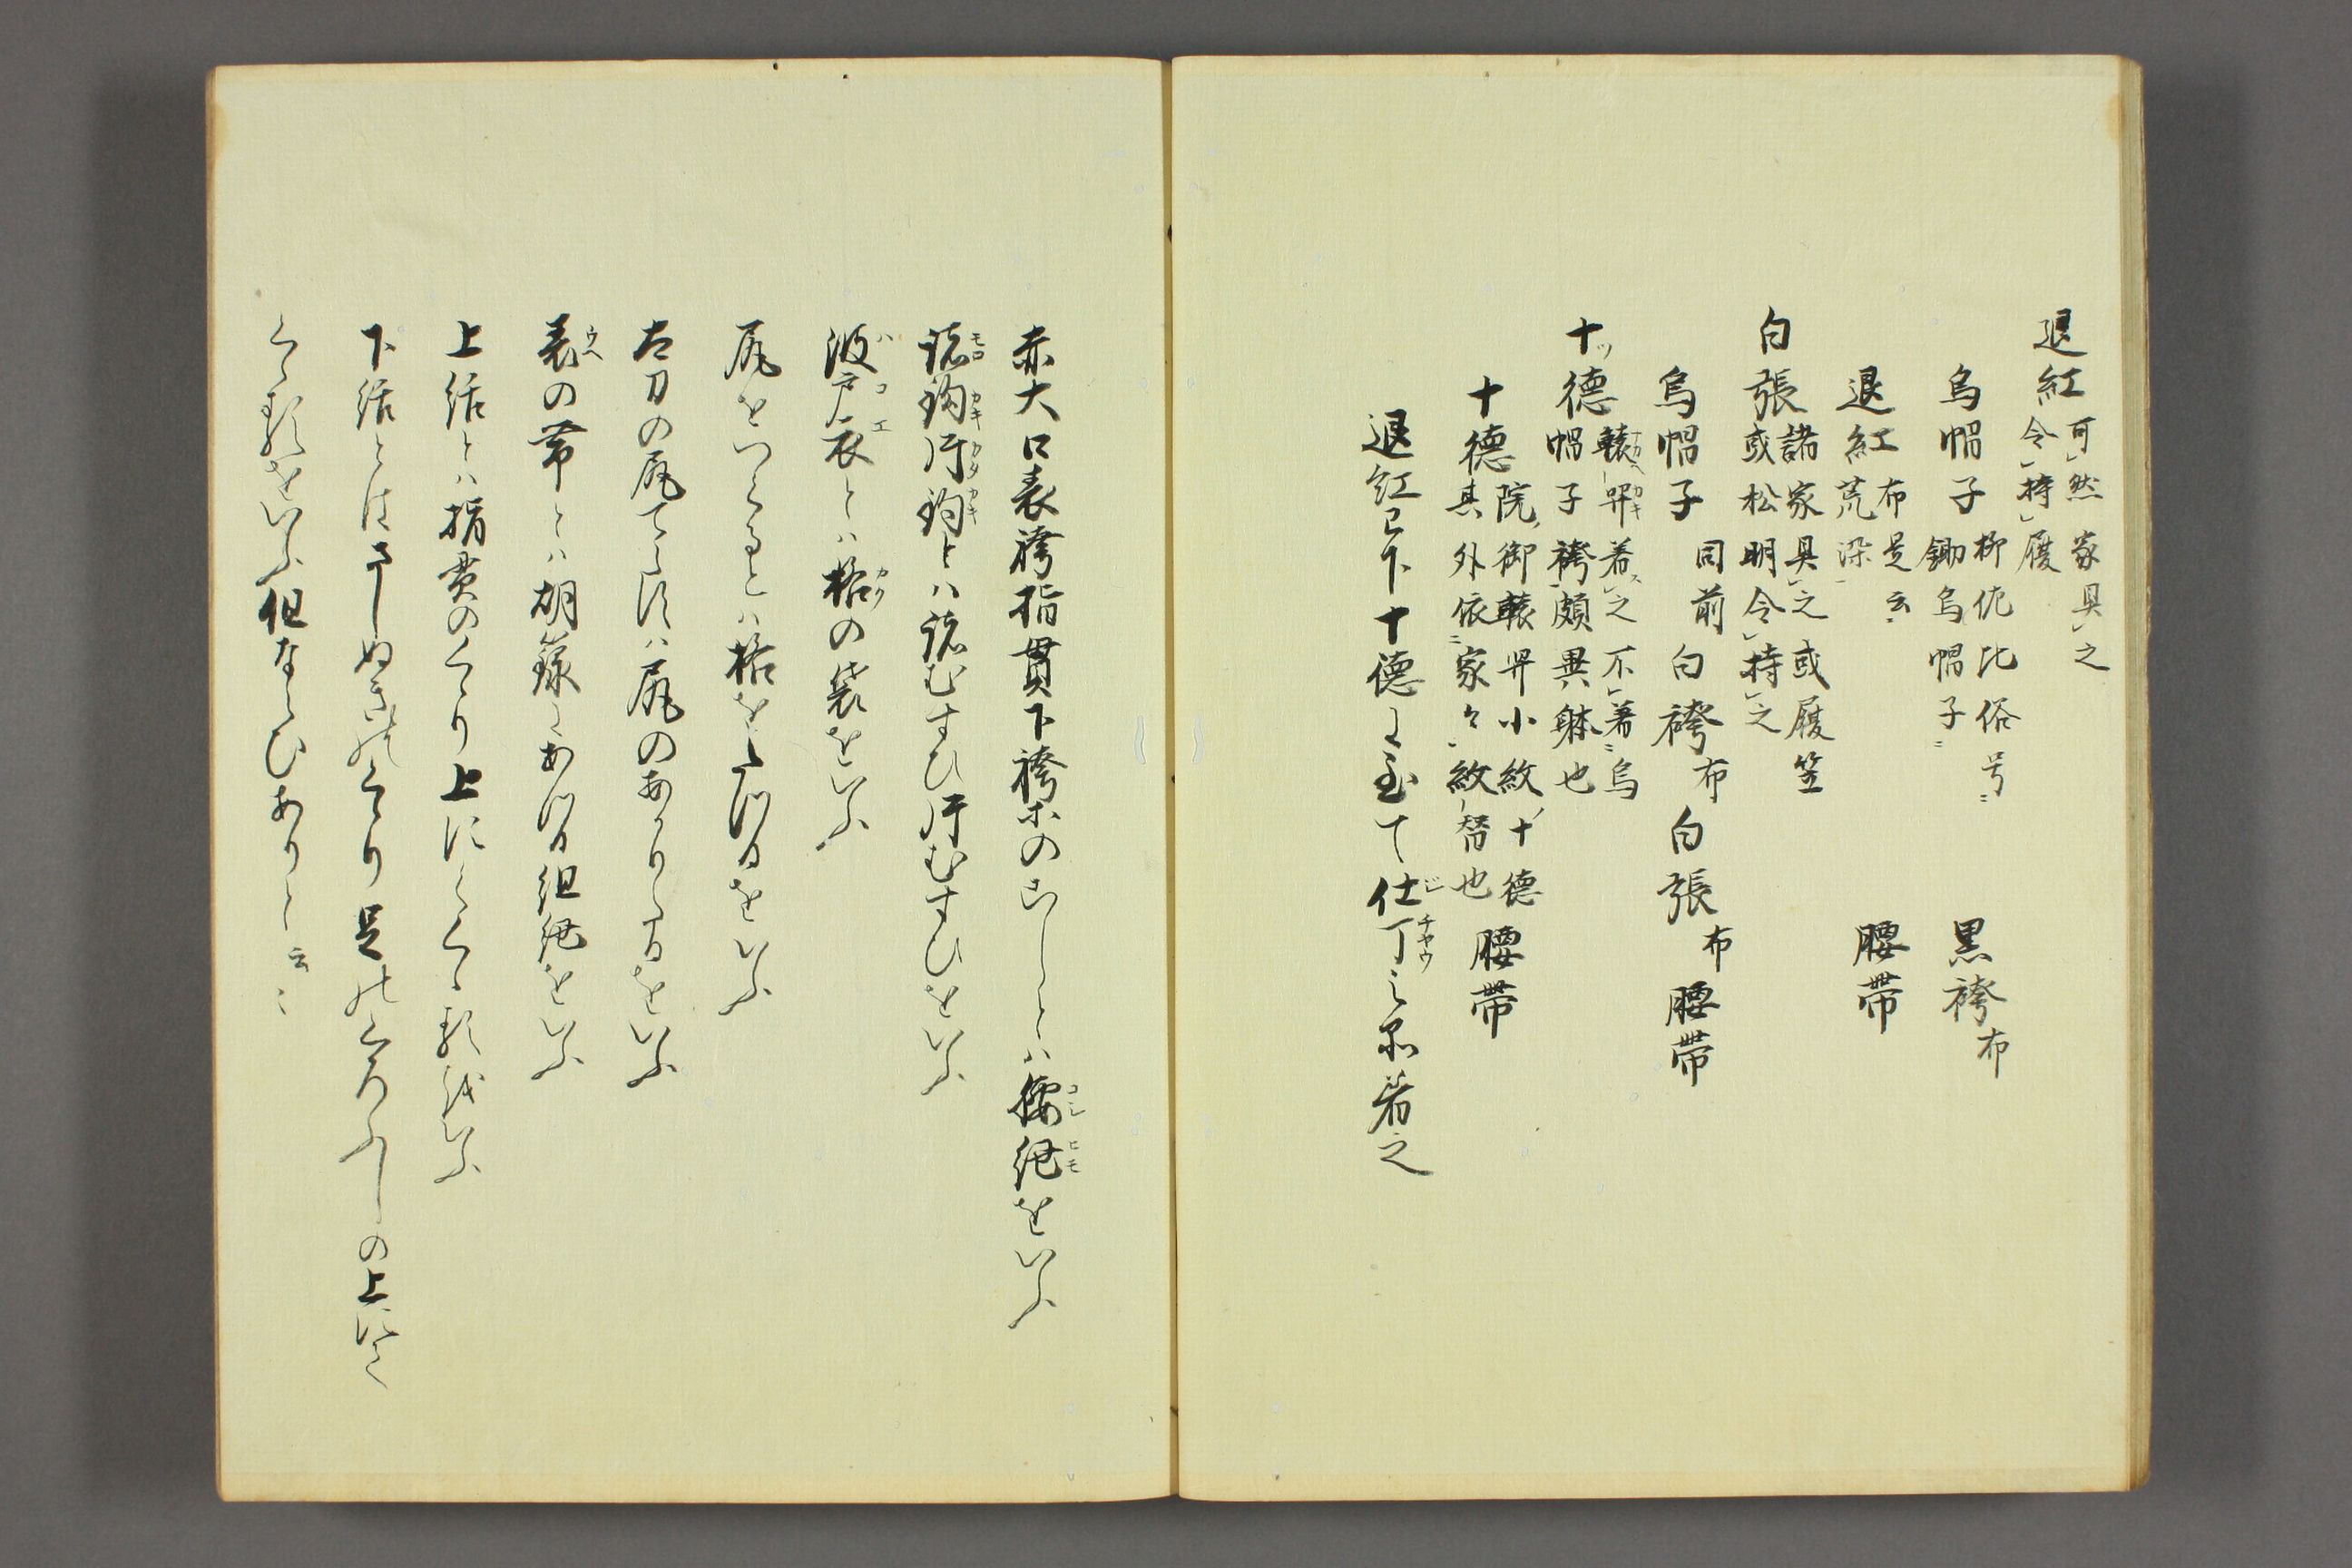 退紅 可然家具之
令持履
烏帽子 柳佐比俗号
鋤烏帽子 黒袴布
退紅 布是云
荒染 腰帯
白張 諸家具之或履笠
或松明令持之
烏帽子 同前 白袴布 白張布 腰帯
十徳 轅舁着之不著烏
帽子袴頗異躰也
十徳 院御轅舁小紋十徳
其外依家々紋替也 腰帯
退紅已下十徳ニ至て仕丁之品着之
赤大口表袴指貫下袴等のこしとハ腰紐をいふ
諸鈎片鈎とハ諸むすひ片むすひをいふ
波戸衣とハ
の袋をいふ
尻をいくるとハ
をいふ
太刀の尻
ハ尻のあかりたるをいふ
表の帯とハ胡籙ニあツる組紐をいふ
上括とハ指貫のくゝり上にてくゝるをいふ
下括とはさしぬきのくゝり足のくろふしの上にて
くゝるをいふ但ならひありと云々